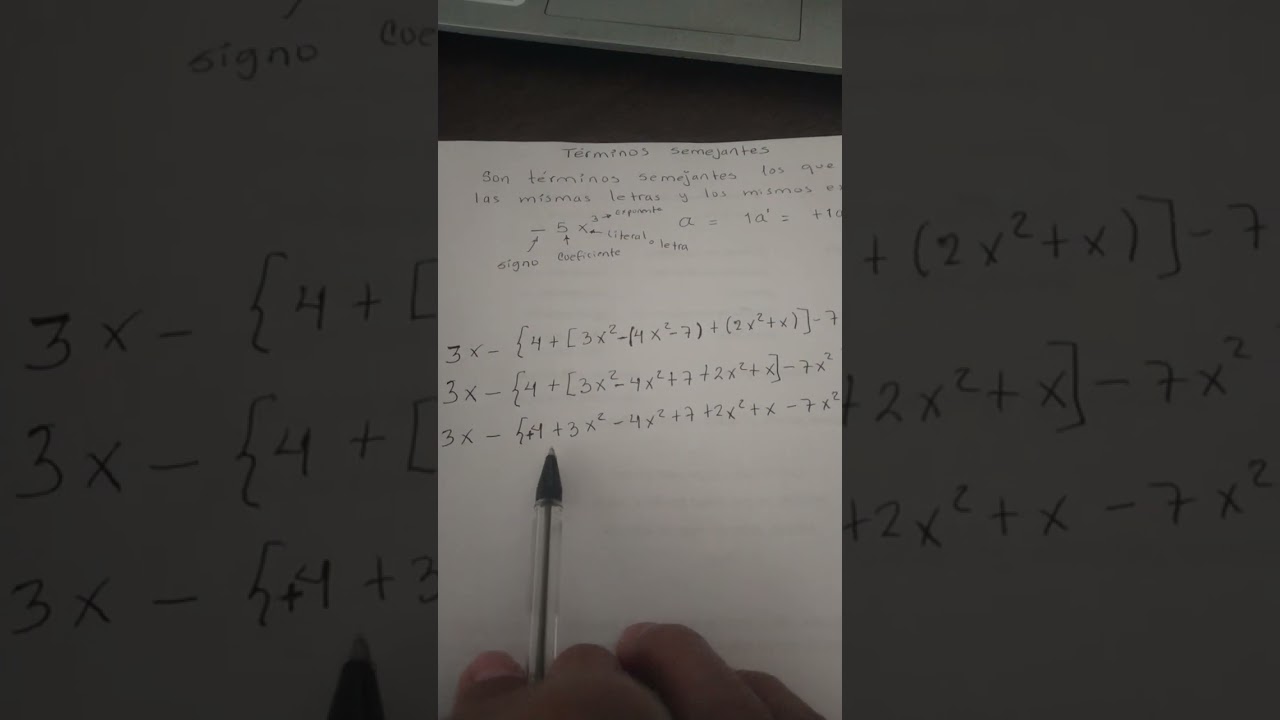 Términos semejantes
Son términos semejantes los que
las mismas letras y los mismos
- 5 x³ → exponente a = 1a' = +1a
← literal o letra
signo coeficiente
3x - {4 + [3x² - (4x² - 7) + (2x² + x)] - 7
3x - {4 + [3x² - 4x² + 7 + 2x² + x] - 7x²
3x - {+4 + 3x² - 4x² + 7 + 2x² + x - 7x²